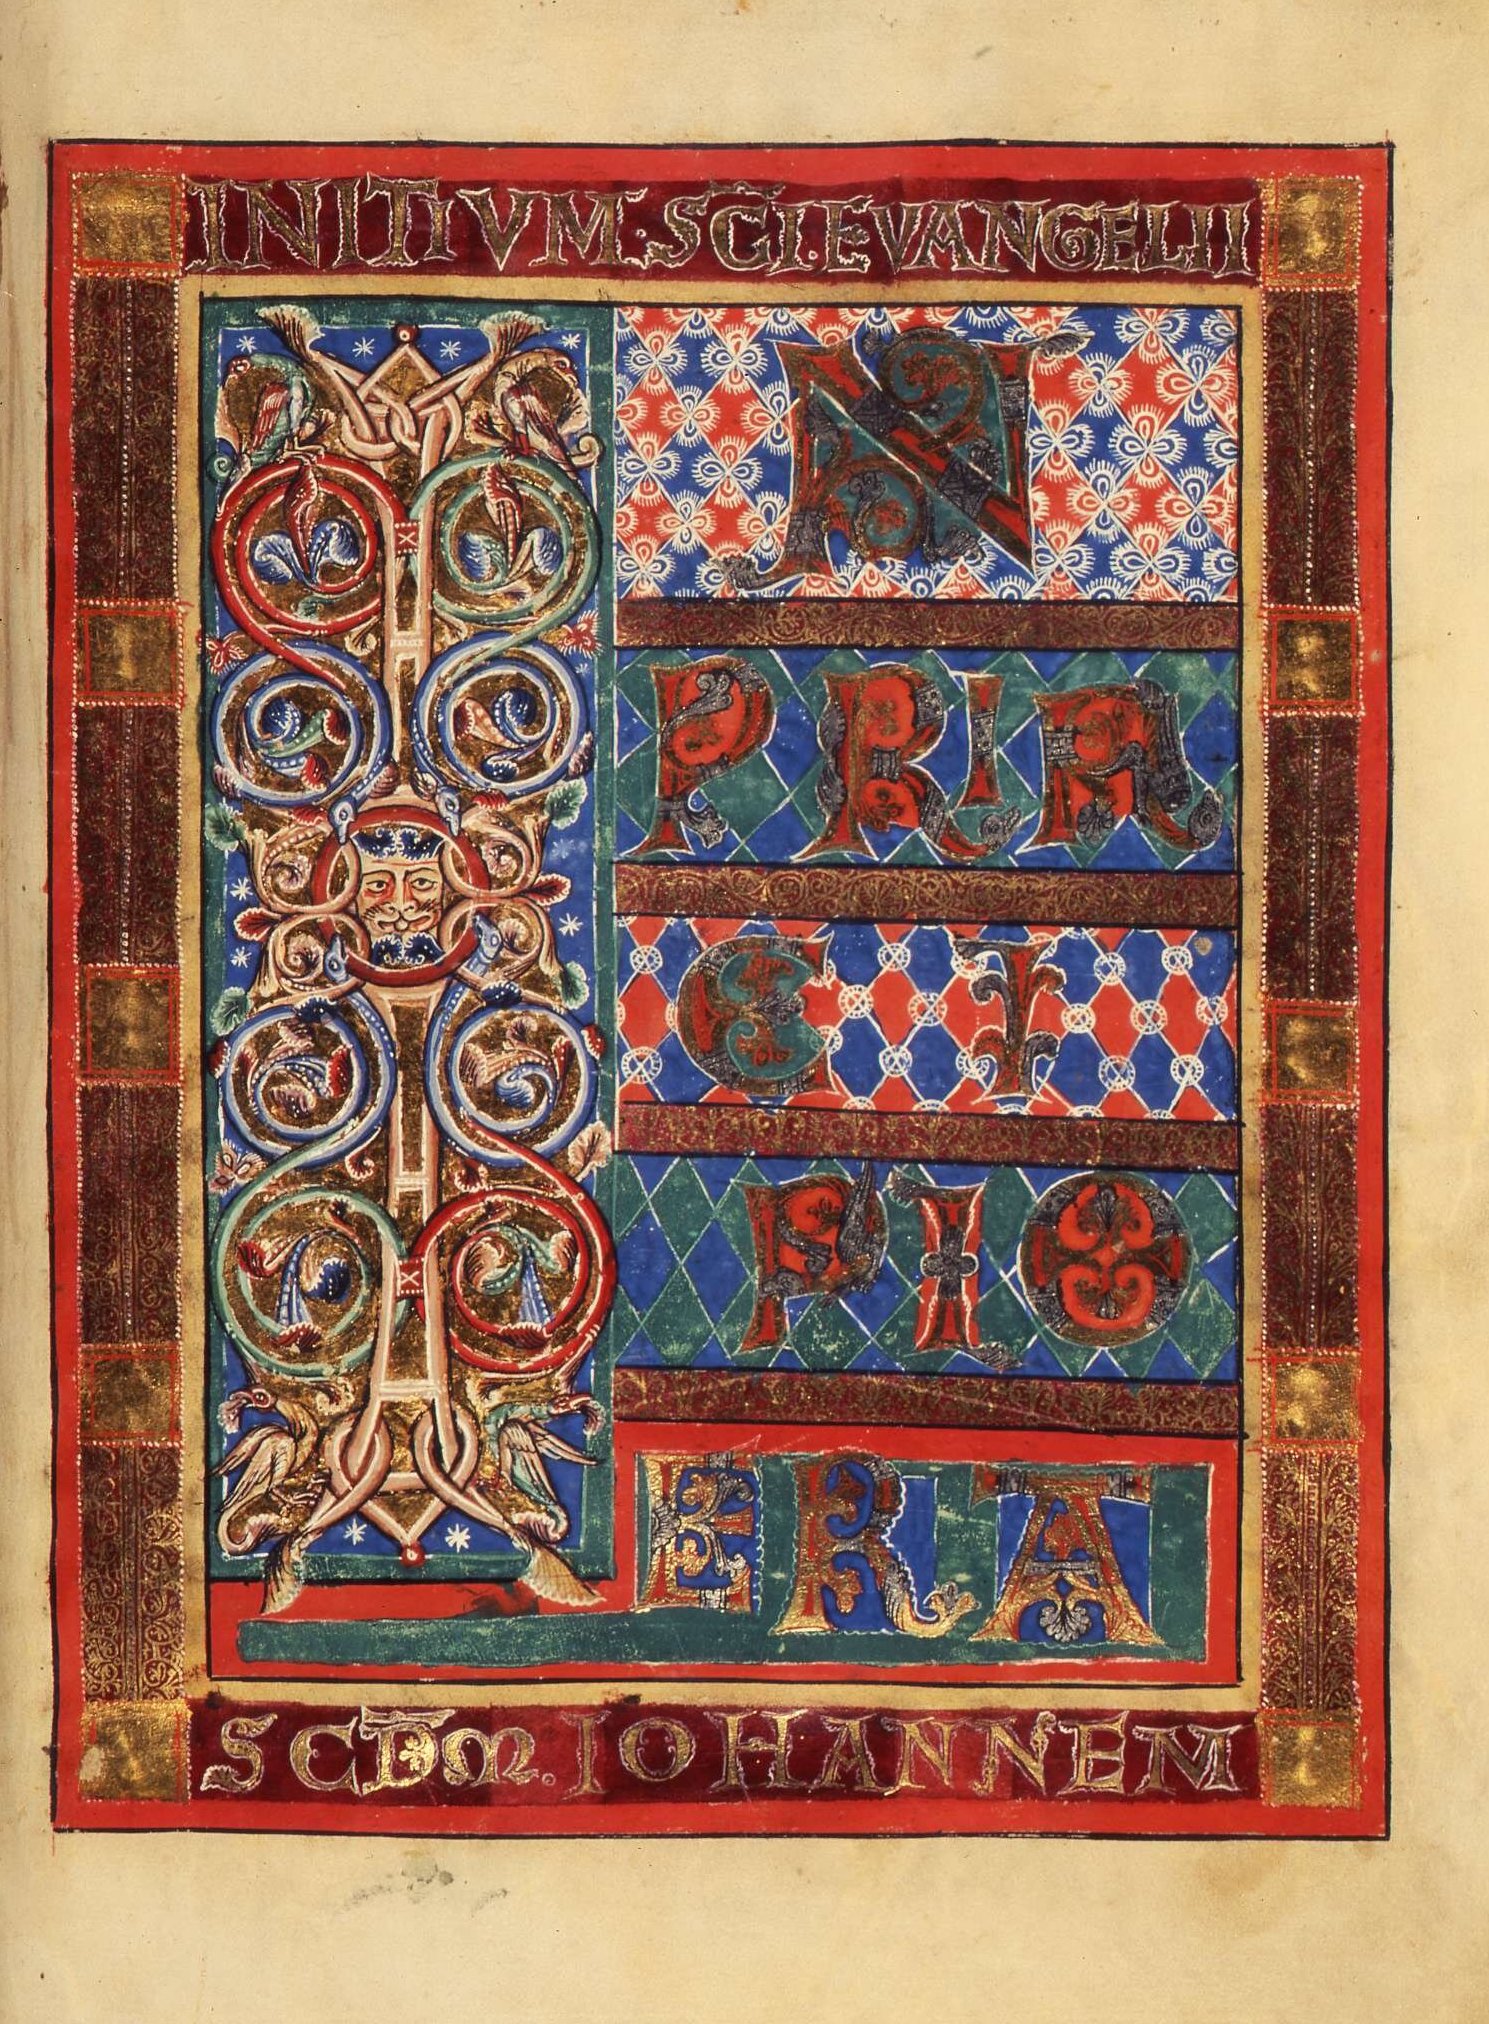 INITIVM·SC̄I·EVANGELII
I N
PRIN
CI
PIO
ERA
SCD̄M. IOHANNEM